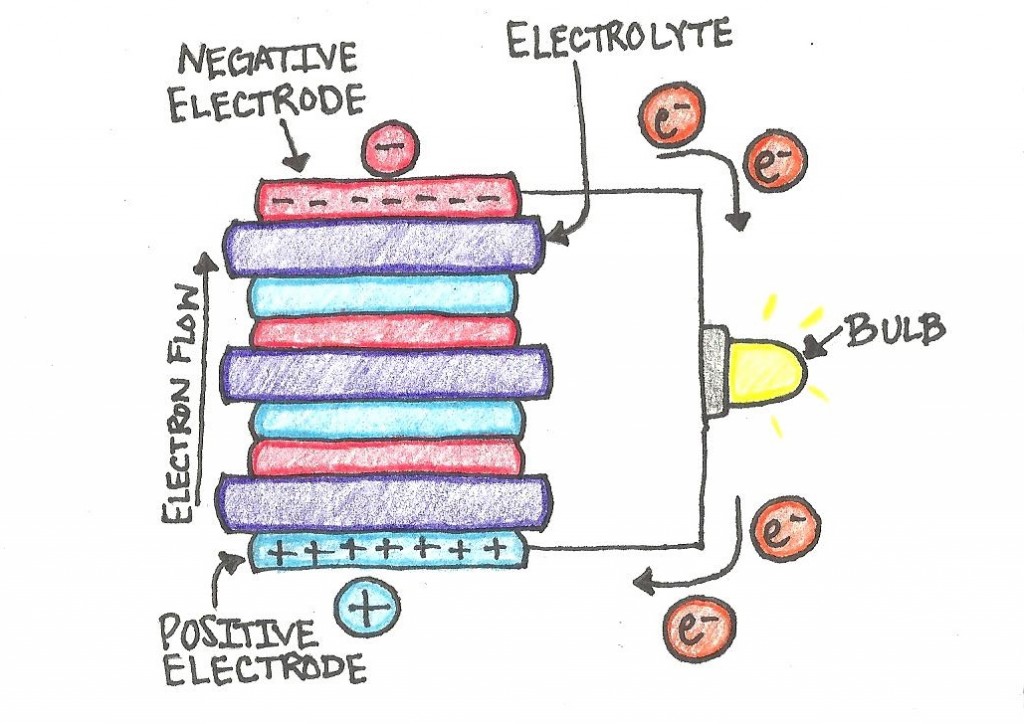 NEGATIVE
ELECTRODE
ELECTROLYTE
e-
e-
−
− − − − − − −
ELECTRON FLOW
BULB
e-
e-
+ + + + + + +
+
POSITIVE
ELECTRODE